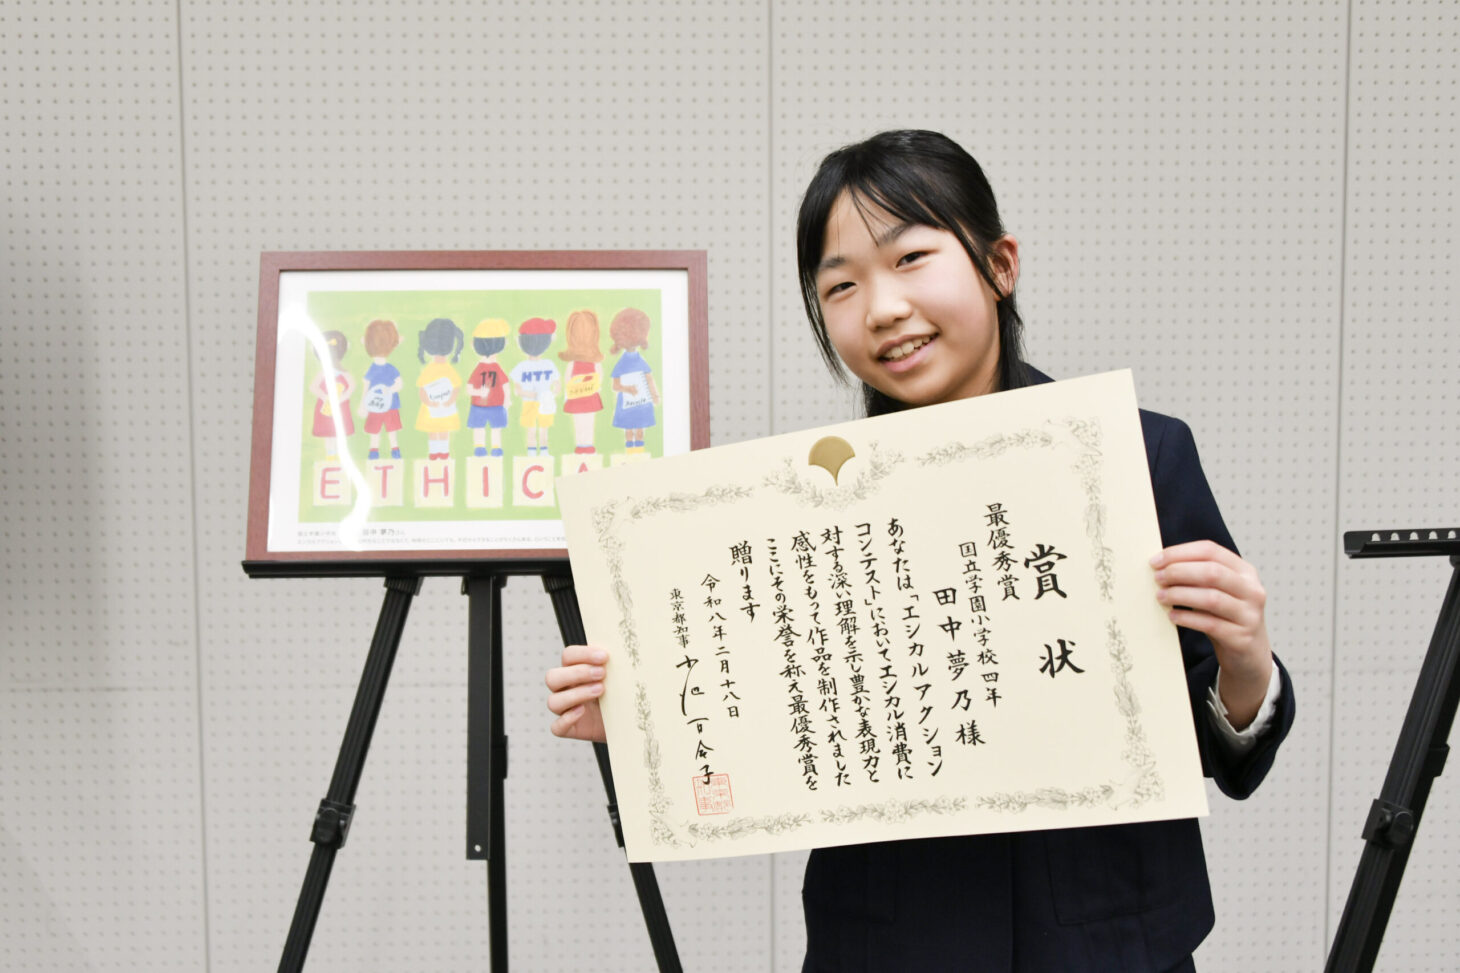 賞状
最優秀賞
国立学園小学校四年
田中夢乃様
あなたは「エシカルアクション
コンテスト」においてエシカル消費に
対する深い理解を示し豊かな表現力と
感性をもって作品を制作されました
ここにその栄誉を称え最優秀賞を
贈ります
令和八年二月十八日
東京都知事 小池百合子
17
HTT
ETHICA
田中 夢乃さん